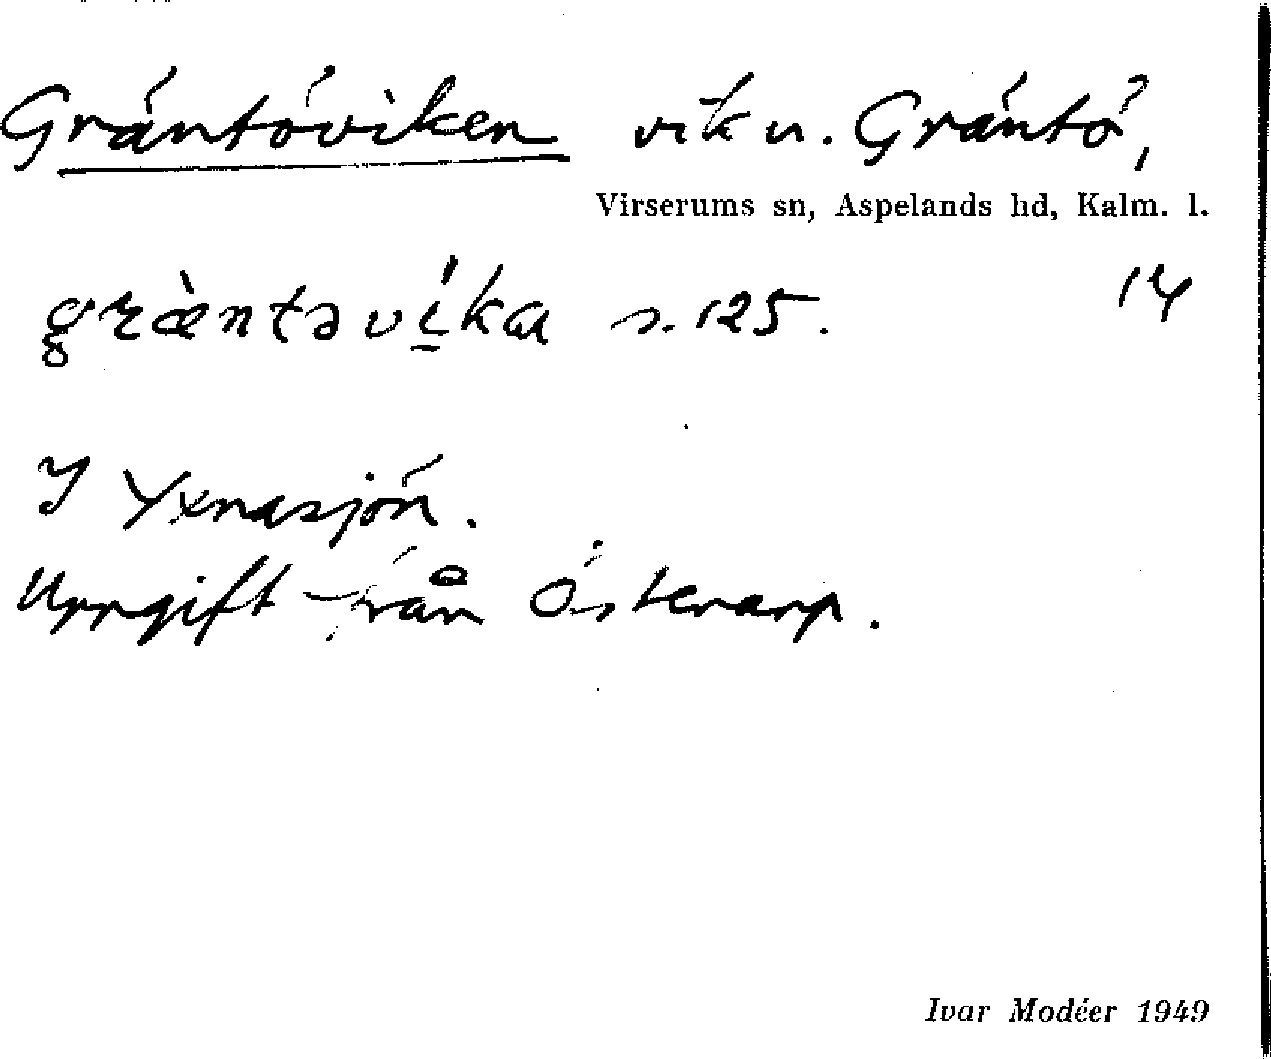 Gräntöviken vik v. Gräntö,
Virserums sn, Aspelands hd, Kalm. l.
græ̀ntəvíka s. 125. 14
I Yxnasjön.
Uppgift från Österarp.
Ivar Modéer 1949